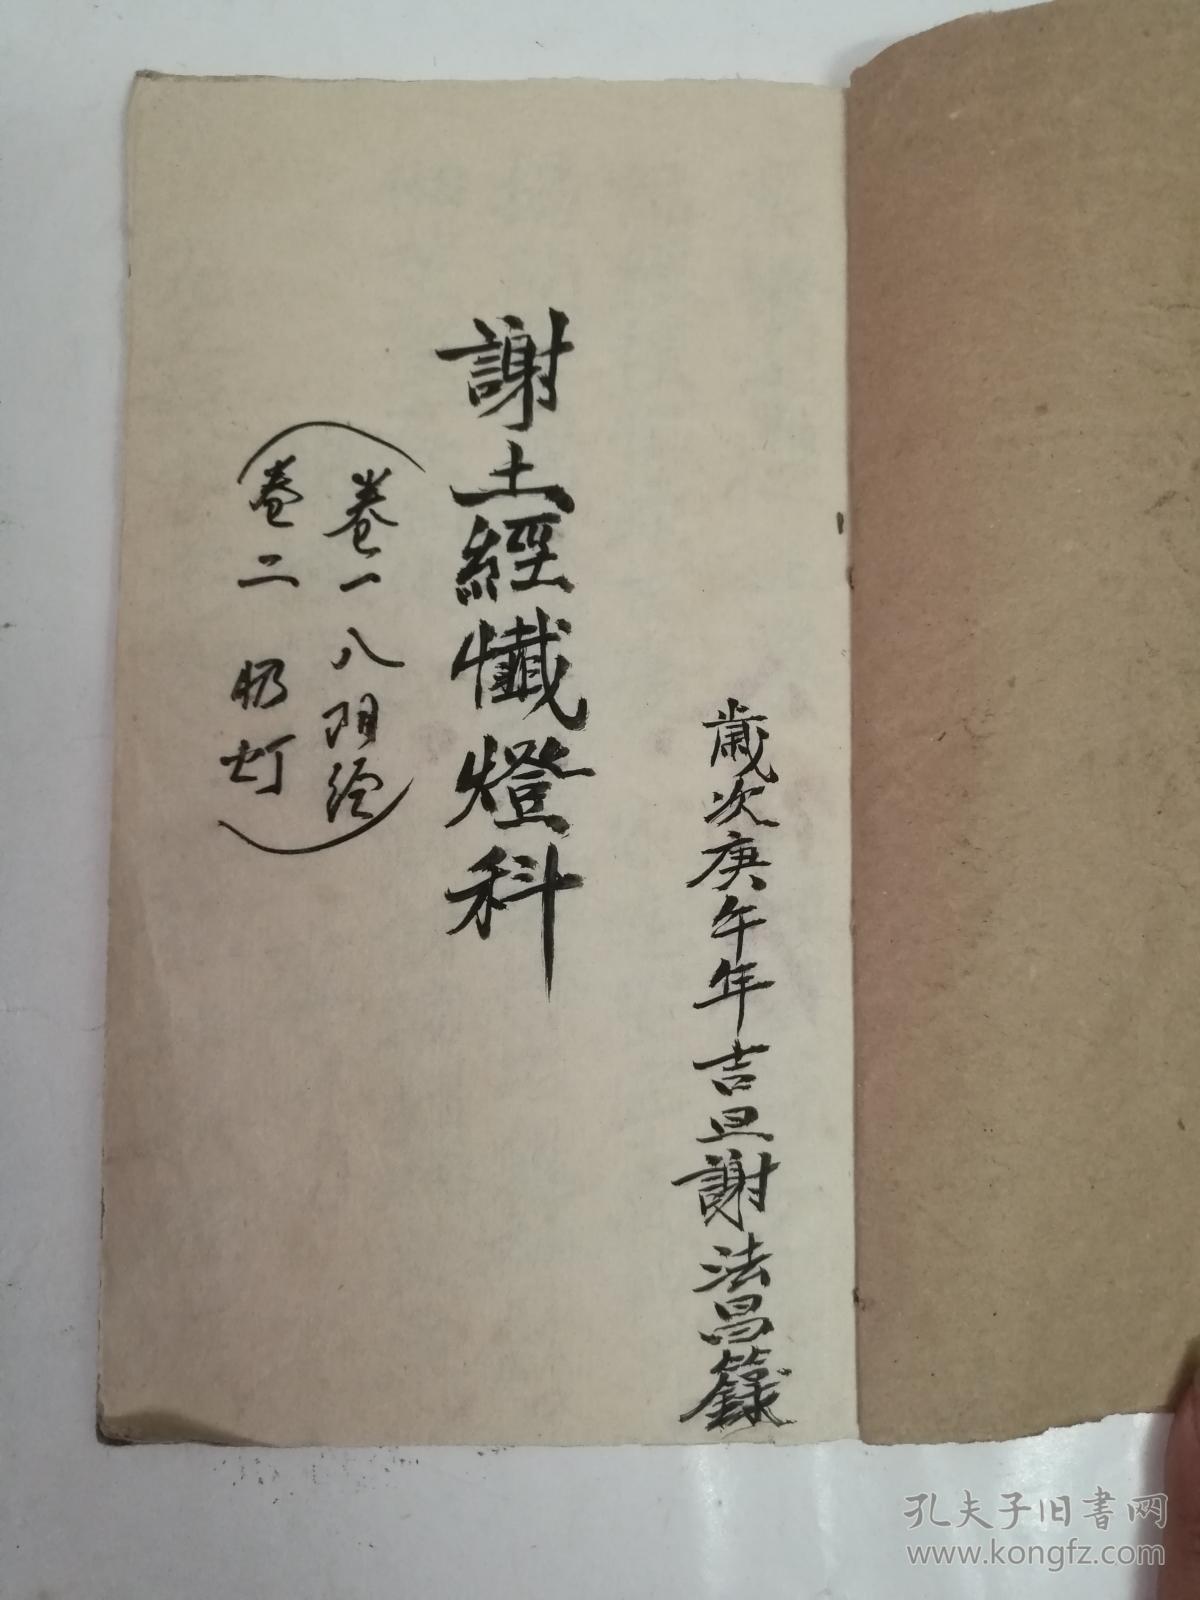 歲次庚午年吉旦謝法昌籙
謝土經懺燈科
(卷一 八阳经
卷二 灯)
孔夫子旧書网
www.kongfz.com